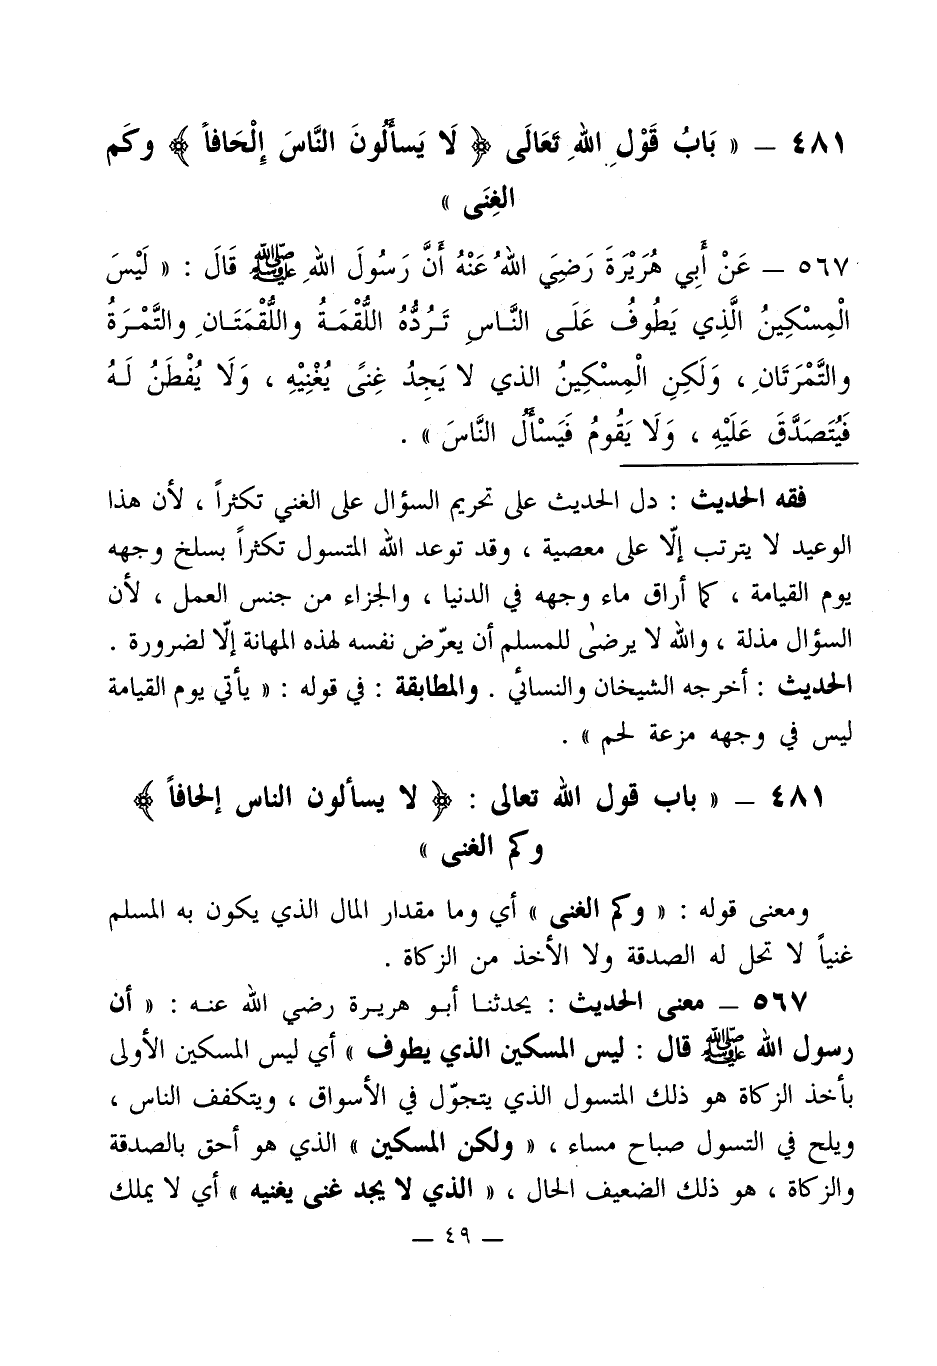 ٤٨١ – « بَابُ قَوْلِ اللهِ تَعَالَى ﴿ لَا يَسأَلُونَ النَّاسَ إِلْحَافاً ﴾ وكَم
الغِنَى »
٥٦٧ – عَنْ أَبِي هُرَيْرَةَ رَضِيَ اللهُ عَنْهُ أَنَّ رَسُولَ اللهِ ﷺ قَالَ : « لَيْسَ
الْمِسْكِينُ الَّذِي يَطُوفُ عَلَى النَّاسِ تَرُدُّهُ اللُّقْمَةُ واللُّقْمَتَانِ والتَّمْرَةُ
والتَّمْرَتَانِ ، وَلَكِنِ الْمِسْكِينُ الذي لا يَجِدُ غِنىً يُغْنِيهِ ، وَلَا يُفْطَنُ لَهُ
فَيُتَصَدَّقَ عَلَيْهِ ، وَلَا يَقُومُ فَيَسْأَلُ النَّاسَ » .
فقه الحديث : دل الحديث على تحريم السؤال على الغني تكثراً ، لأن هذا
الوعيد لا يترتب إلّا على معصية ، وقد توعد الله المتسول تكثراً بسلخ وجهه
يوم القيامة ، كما أراق ماء وجهه في الدنيا ، والجزاء من جنس العمل ، لأن
السؤال مذلة ، والله لا يرضىٰ للمسلم أن يعرّض نفسه لهذه المهانة إلّا لضرورة .
الحديث : أخرجه الشيخان والنسائي . والمطابقة : في قوله : « يأتي يوم القيامة
ليس في وجهه مزعة لحم » .
٤٨١ – « باب قول الله تعالى : ﴿ لا يسألون الناس إلحافاً ﴾
وكم الغنى »
ومعنى قوله : « وكم الغنى » أي وما مقدار المال الذي يكون به المسلم
غنياً لا تحل له الصدقة ولا الأخذ من الزكاة .
٥٦٧ – معنى الحديث : يحدثنا أبو هريرة رضي الله عنه : « أن
رسول الله ﷺ قال : ليس المسكين الذي يطوف » أي ليس المسكين الأولى
بأخذ الزكاة هو ذلك المتسول الذي يتجوّل في الأسواق ، ويتكفف الناس ،
ويلح في التسول صباح مساء ، « ولكن المسكين » الذي هو أحق بالصدقة
والزكاة ، هو ذلك الضعيف الحال ، « الذي لا يجد غنى يغنيه » أي لا يملك
– ٤٩ –